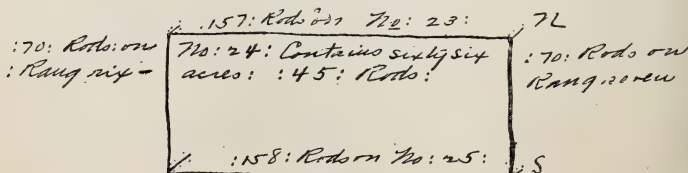 :157: Rods on No: 23: N
:70: Rods: on
: Rang six -
No: 24: Contains sixty six
acres: :45: Rods:
:70: Rods on
Rang seven
:158: Rods on No: 25: S